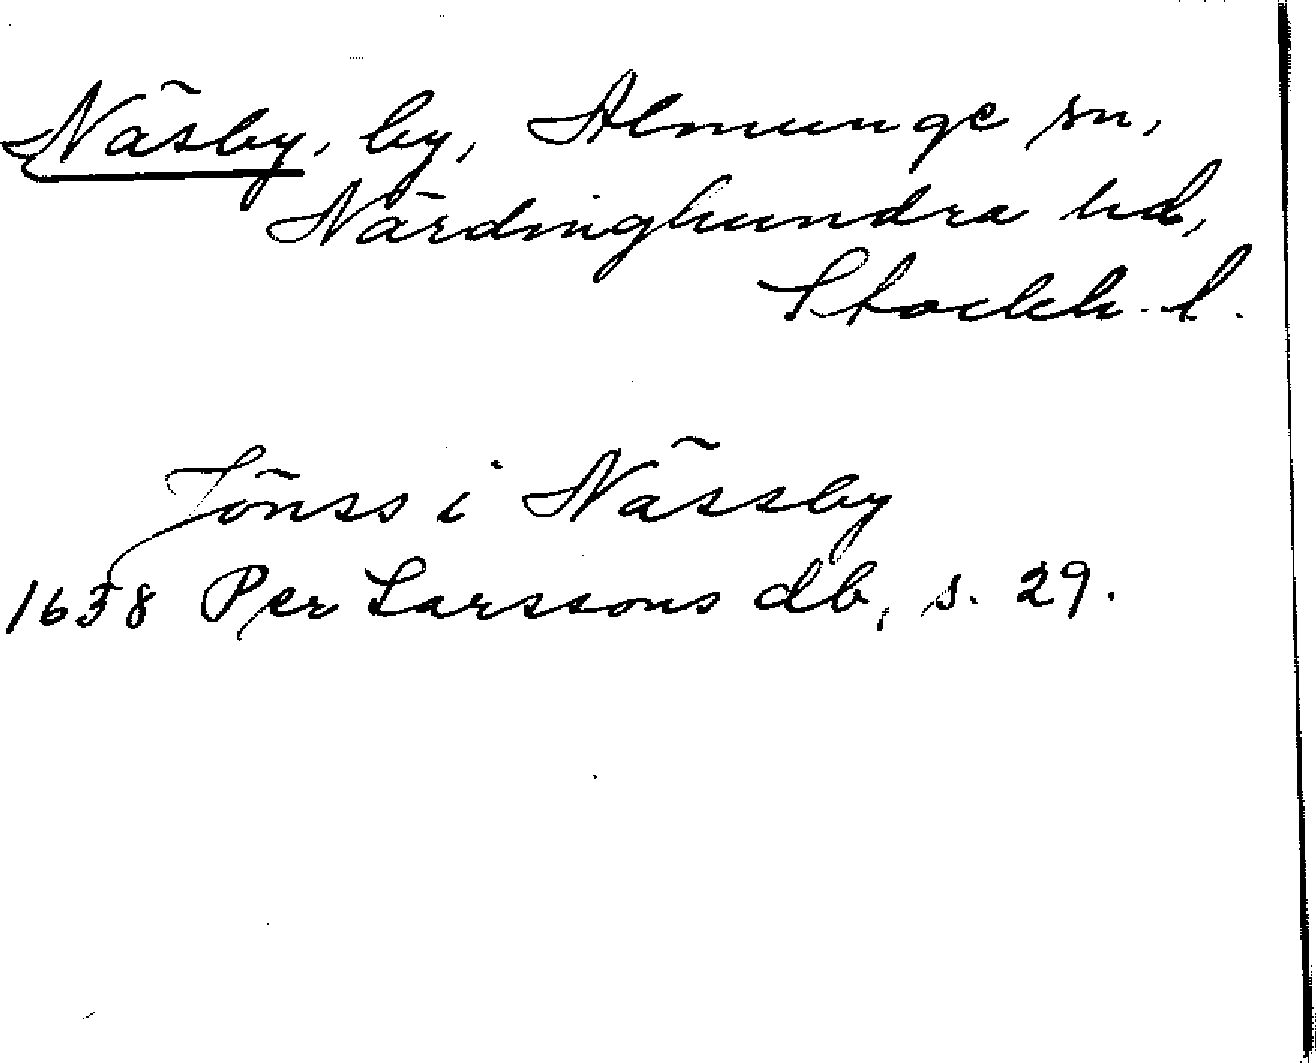 Näsby, by, Almunge sn,
Närdinghundra hd,
Stockh. l.
Jönss i Nässby
1638 Per Larssons db, s. 29.